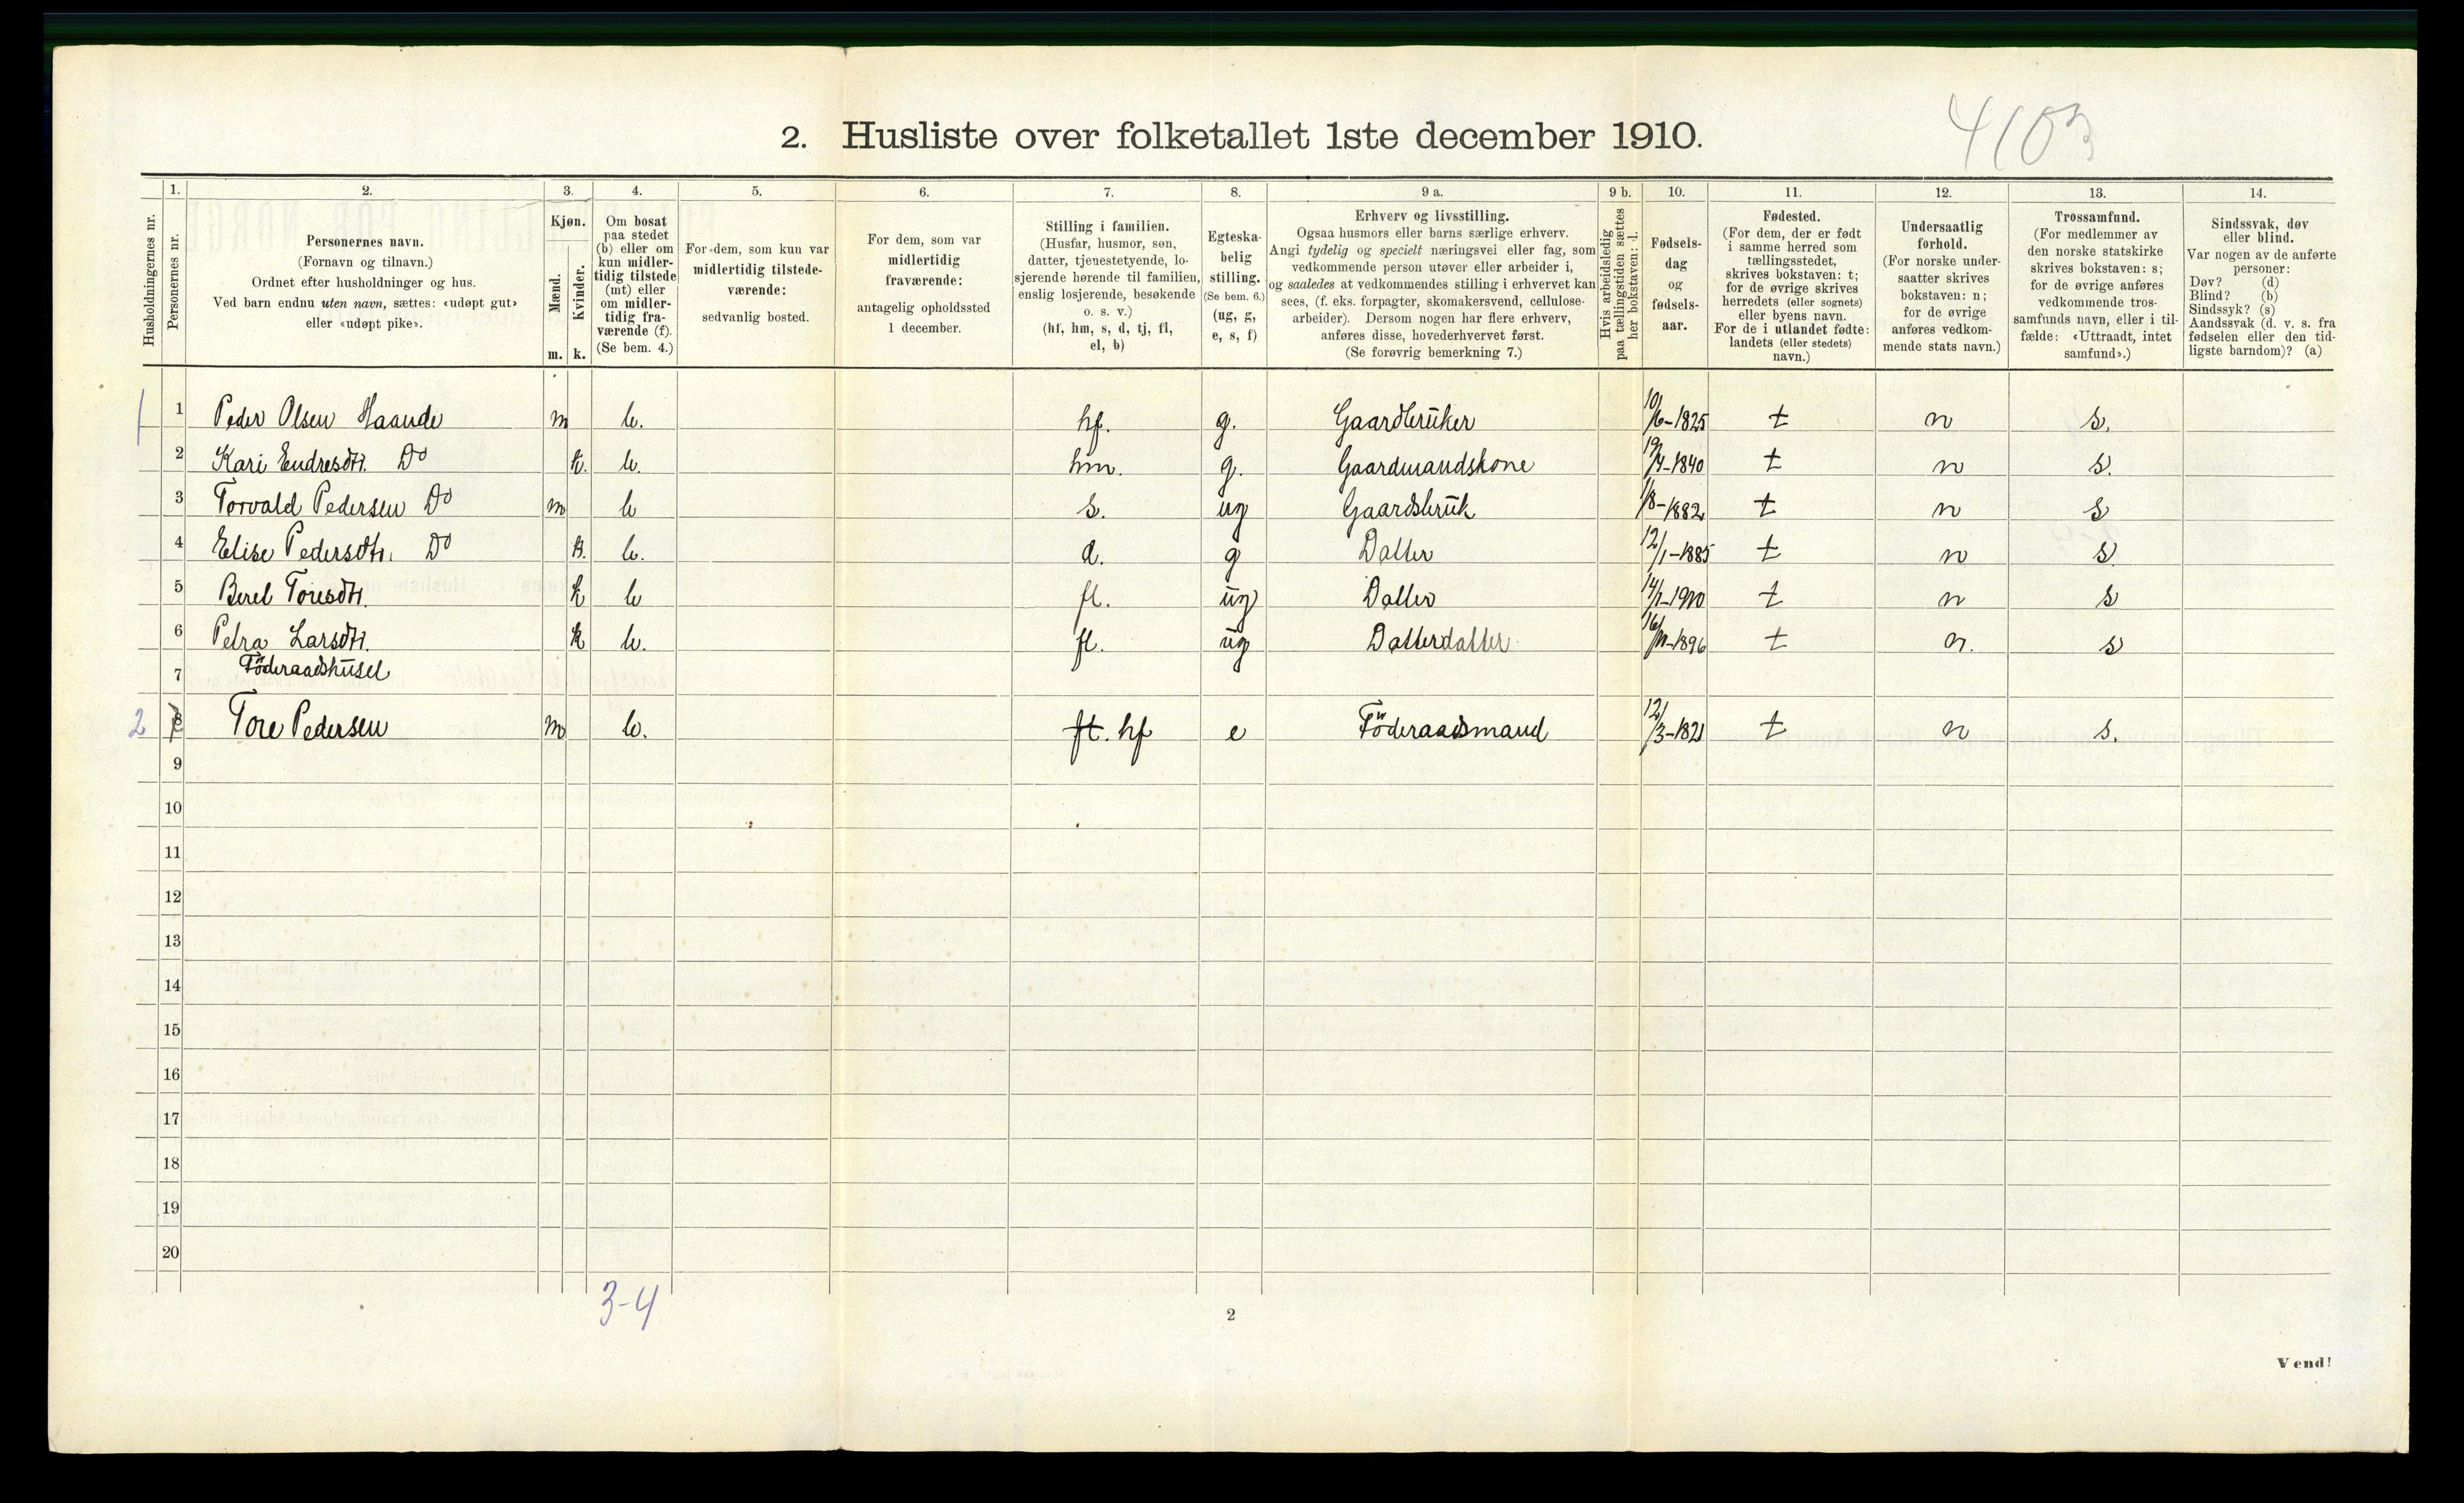 4103
2. Husliste over folketallet 1ste december 1910.
Husholdningernes nr.
1. Personernes nr.
2. Personernes navn.
(Fornavn og tilnavn.)
Ordnet efter husholdninger og hus.
Ved barn endnu uten navn, sættes: «udøpt gut»
eller «udøpt pike».
3. Kjøn.
Mænd. m.
Kvinder. k.
4. Om bosat
paa stedet
(b) eller om
kun midler-
tidig tilstede
(mt) eller
om midler-
tidig fra-
værende (f).
(Se bem. 4.)
5. For dem, som kun var
midlertidig tilstede-
værende:
sedvanlig bosted.
6. For dem, som var
midlertidig
fraværende:
antagelig opholdssted
1 december.
7. Stilling i familien.
(Husfar, husmor, søn,
datter, tjenestetyende, lo-
sjerende hørende til familien,
enslig losjerende, besøkende
o. s. v.)
(hf, hm, s, d, tj, fl,
el, b)
8. Egteska-
belig
stilling.
(Se bem. 6.)
(ug, g,
e, s, f)
9 a. Erhverv og livsstilling.
Ogsaa husmors eller barns særlige erhverv.
Angi tydelig og specielt næringsvei eller fag, som
vedkommende person utøver eller arbeider i,
og saaledes at vedkommendes stilling i erhvervet kan
sees, (f. eks. forpagter, skomakersvend, cellulose-
arbeider). Dersom nogen har flere erhverv,
anføres disse, hovederhvervet først.
(Se forøvrig bemerkning 7.)
9 b. Hvis arbeidsledig
paa tællingstiden sættes
her bokstaven: l.
10. Fødsels-
dag
og
fødsels-
aar.
11. Fødested.
(For dem, der er født
i samme herred som
tællingsstedet,
skrives bokstaven: t;
for de øvrige skrives
herredets (eller sognets)
eller byens navn.
For de i utlandet fødte:
landets (eller stedets)
navn.)
12. Undersaatlig
forhold.
(For norske under-
saatter skrives
bokstaven: n;
for de øvrige
anføres vedkom-
mende stats navn.)
13. Trossamfund.
(For medlemmer av
den norske statskirke
skrives bokstaven: s;
for de øvrige anføres
vedkommende tros-
samfunds navn, eller i til-
fælde: «Uttraadt, intet
samfund».)
14. Sindssvak, døv
eller blind.
Var nogen av de anførte
personer:
Døv? (d)
Blind? (b)
Sindssyk? (s)
Aandssvak (d. v. s. fra
fødselen eller den tid-
ligste barndom)? (a)
1 1 Peder Olsen Haande m b. hf. g. Gaardbruker 10/6-1825 t n s.
2 Kari Endresdtr. Do k. b. hm. g. Gaardmandskone 19/4-1840 t n s.
3 Torvald Pedersen Do m b s. ug Gaardsbruk 1/8-1882 t n s
4 Elise Pedersdtr. Do k. b. d. g Datter 12/1-1885 t n s
5 Beret Toresdtr. k b fl. ug Datter t n s
6 Petra Larsdtr. k b. fl. ug Datterdatter t n. s
7 Föderaadshuset
2 8 Tore Pedersen m b. ft. hf e Föderaadsmand 12/3-1821 t n s.
9
10
11
12
13
14
15
16
17
18
19
20
3-4
2
Vend!